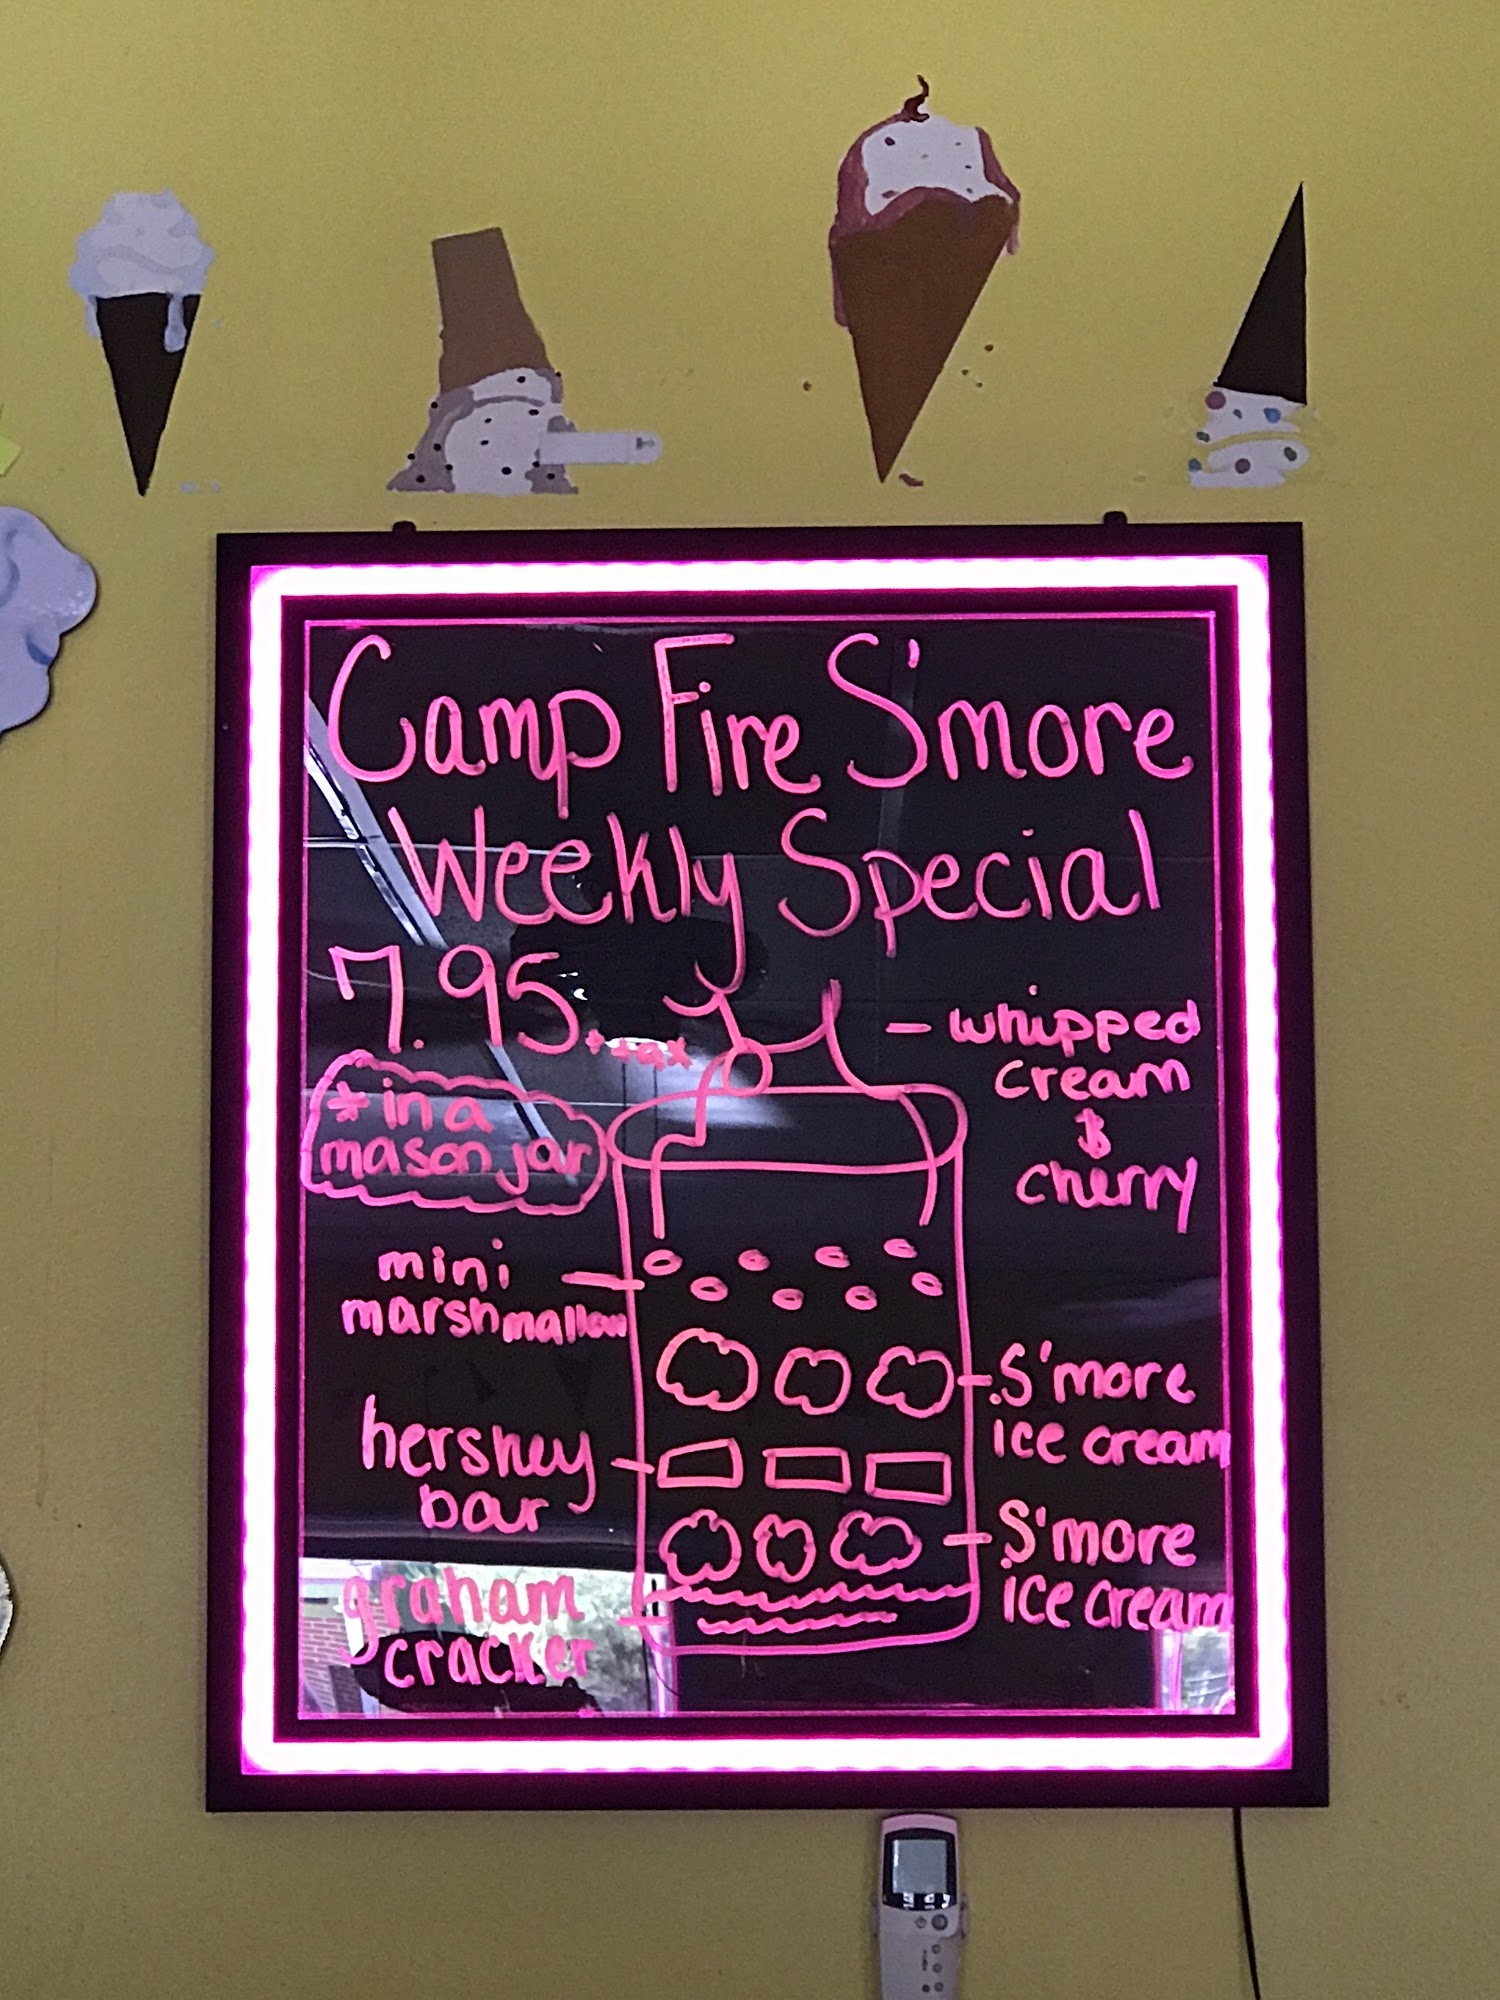 Camp Fire S'more
Weekly Special
7.95 + tax
* in a
mason jar
whipped
cream
&
cherry
mini
marshmallow
S'more
ice cream
hershey
bar
S'more
ice cream
graham
cracker